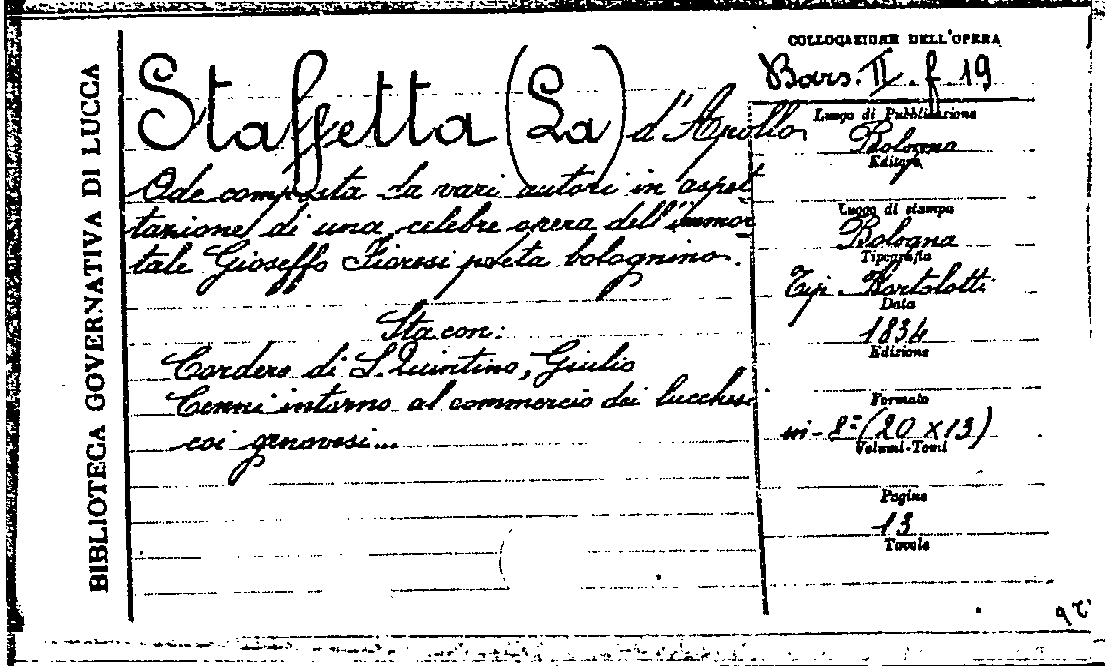 BIBLIOTECA GOVERNATIVA DI LUCCA
Staffetta (La) d'Apollo
Ode composta da vari autori in aspet
tazione di una celebre opera dell'immor
tale Gioseffo Fioresi poeta bolognino.
Sta con:
Cordero di S. Quintino, Giulio
Cenni intorno al commercio dei lucchesi
coi genovesi...
COLLOCAZIONE DELL'OPERA
Bars. II. f. 19
Luogo di Pubblicazione
Bologna
Editore
Luogo di stampa
Bologna
Tipografia
Tip. Bortolotti
Data
1834
Edizione
Formato
in-8º (20 x 13)
Volumi-Tomi
Pagine
13
Tavole